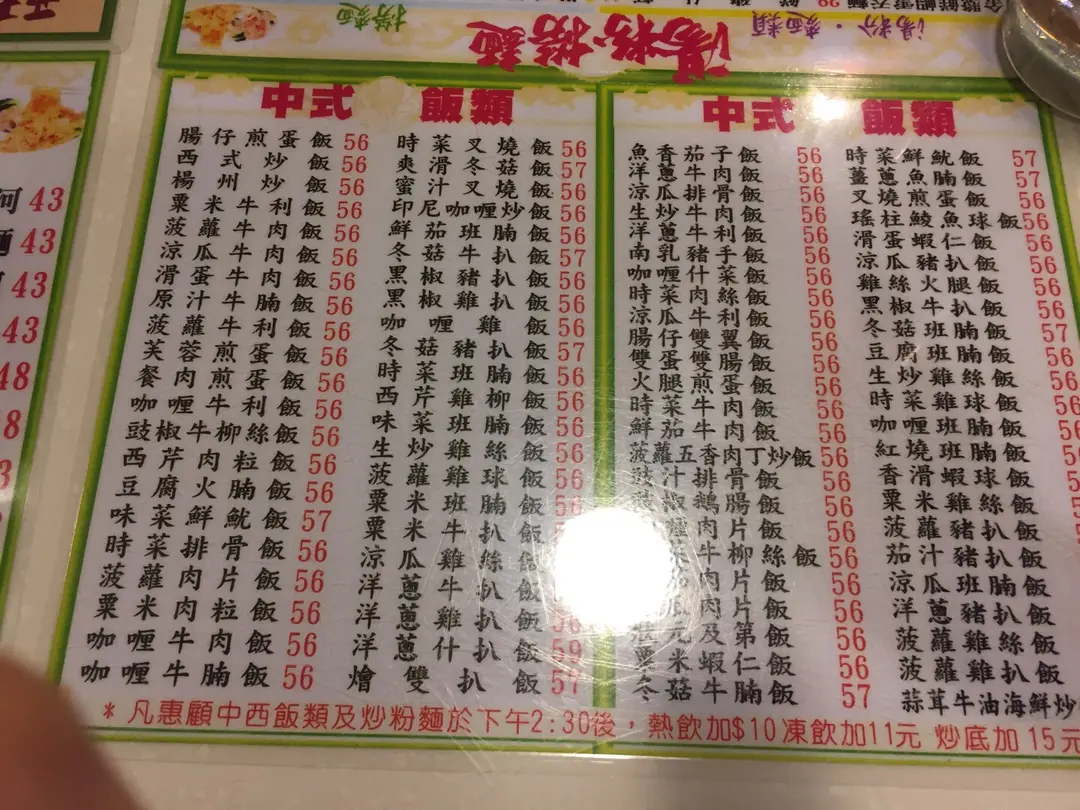 湯粉·撈麵
湯粉·麵類
撈麵
河 43
麵 43
43
43
48
中式 飯類
腸仔煎蛋飯 56
西式炒飯 56
楊州炒飯 56
粟米牛利飯 56
菠蘿牛肉飯 56
涼瓜牛肉飯 56
滑蛋牛肉飯 56
原汁牛腩飯 56
菠蘿牛利飯 56
芙蓉煎蛋飯 56
餐肉煎蛋飯 56
咖喱牛利飯 56
豉椒牛柳絲飯 56
西芹肉粒飯 56
豆腐火腩飯 56
味菜鮮魷飯 57
時菜排骨飯 56
菠蘿肉片飯 56
粟米肉粒飯 56
咖喱牛肉飯 56
咖喱牛腩飯 56
時菜叉燒飯 56
爽滑冬菇飯 57
蜜汁叉燒飯 56
印尼咖喱炒飯 56
鮮茄班腩飯 56
冬菇牛扒飯 57
黑椒豬扒飯 56
黑椒雞扒飯 56
咖喱雞飯 56
冬菇豬扒飯 57
時菜班腩飯 56
西芹雞柳飯 56
味菜班腩飯 56
生炒雞絲飯 56
菠蘿雞球飯 56
粟米班腩飯 56
粟米牛扒飯
涼瓜雞絲飯
洋蔥牛扒飯
洋蔥雞扒飯 56
洋蔥什扒飯 59
燴雙扒飯 57
中式 飯類
魚香茄子飯 56
洋蔥牛肉飯 56
涼瓜排骨飯 56
生炒牛肉飯 56
洋蔥牛利飯 56
南乳豬手飯 56
咖喱什菜飯 56
時菜肉絲飯 56
涼瓜牛利飯 56
腸仔雙翼飯 56
雙蛋雙腸飯 56
火腿煎蛋飯 56
時菜牛肉飯 56
鮮茄牛肉飯 56
菠蘿五香肉丁炒飯 56
豉汁排骨飯 56
鵝腸飯 56
肉片飯 56
牛柳絲飯 56
肉片飯 56
肉片飯 56
元及第飯 56
粟米蝦仁飯 56
冬菇牛腩飯 57
時菜鮮魷飯 57
薑蔥魚腩飯 57
叉燒煎蛋飯 56
瑤柱鯪魚球飯 56
滑蛋蝦仁飯 56
涼瓜豬扒飯 56
雞絲火腿飯 56
黑椒牛扒飯 56
冬菇班腩飯 57
豆腐班腩飯 56
生炒雞絲飯 56
時菜雞球飯 56
咖喱班腩飯 56
紅燒班腩飯
香滑蝦球飯
粟米雞絲飯
菠蘿豬扒飯
茄汁豬扒飯
涼瓜班腩飯
洋蔥豬扒飯
菠蘿雞絲飯
菠蘿雞扒飯
蒜茸牛油海鮮炒
* 凡惠顧中西飯類及炒粉麵於下午2:30後，熱飲加$10凍飲加11元 炒底加15元